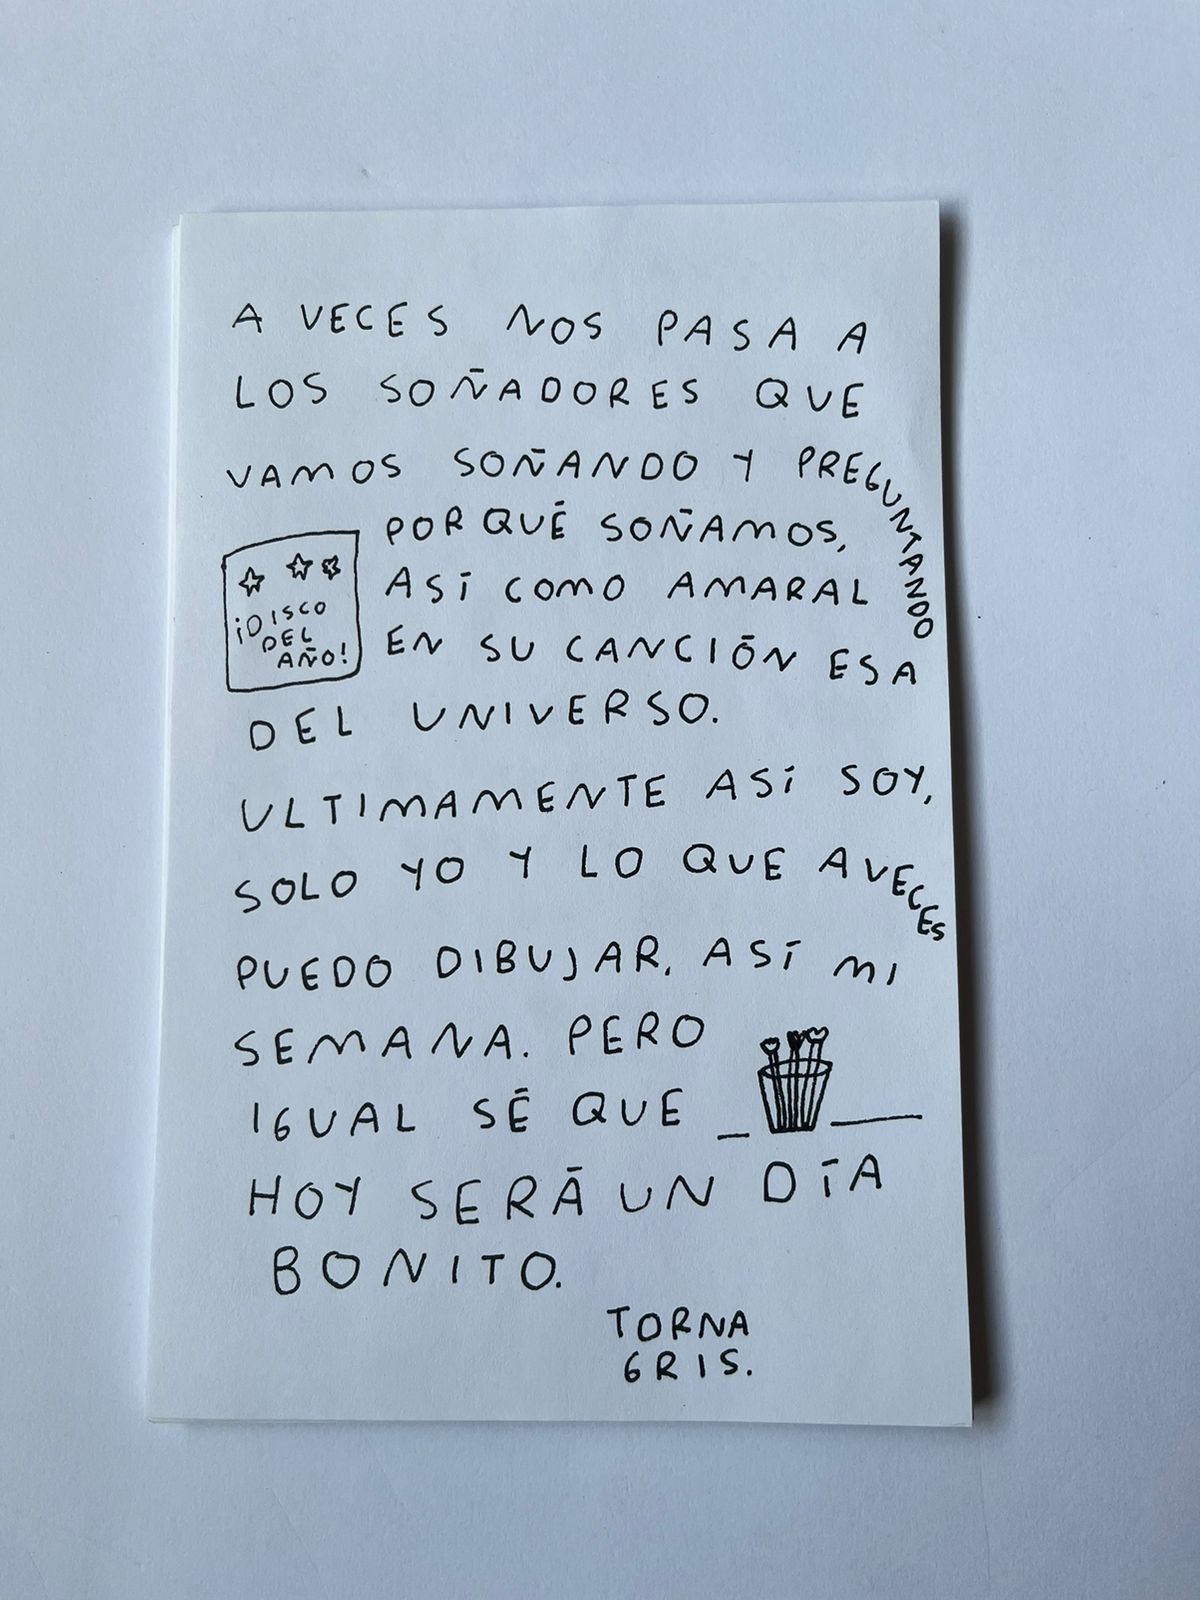 A VECES NOS PASA A
LOS SOÑADORES QUE
VAMOS SOÑANDO Y PREGUNTANDO
POR QUÉ SOÑAMOS,
ASÍ COMO AMARAL
EN SU CANCIÓN ESA
¡DISCO
DEL
AÑO!
DEL UNIVERSO.
ULTIMAMENTE ASÍ SOY,
SOLO YO Y LO QUE A VECES
PUEDO DIBUJAR. ASÍ MI
SEMANA. PERO
IGUAL SÉ QUE
HOY SERÁ UN DÍA
BONITO.
TORNA
GRIS.